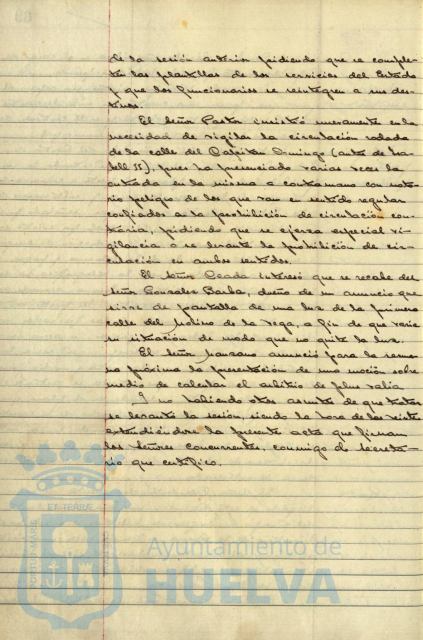 de la sesión anterior pidiendo que se comple-
ten las plantillas de los servicios del Estado
y que los funcionarios se reintegren a sus des-
tinos.
El Señor Pastor insistió nuevamente en la
necesidad de vigilar la circulación rodada
de la calle del Capitán Domingo (antes de Isa-
bel II), pues ha presenciado varias veces la
entrada en la misma a contramano con noto-
rio peligro de los que van en sentido regular
confiados en la prohibición de circulación con-
traria, pidiendo que se ejerza especial vi-
gilancia o se levante la prohibición de cir-
culación en ambos sentidos.
El Señor Ceada interesó que se recabe del
Señor Gonzalez Barba, dueño de un anuncio que
sirve de pantalla de una luz de la primera
calle del Molino de la Vega, a fin de que varie
su situación de modo que no quite la luz.
El Señor Manzano anunció para la sema-
na próxima la presentación de una moción sobre
medio de calcular el arbitrio de plus valía
Y no habiendo otros asuntos de que tratar
se levantó la sesión, siendo la hora de las veinte
extendiéndose la presente acta que firman
los Señores concurrentes, conmigo el Secreta-
rio que certifico.
Ayuntamiento de
HUELVA